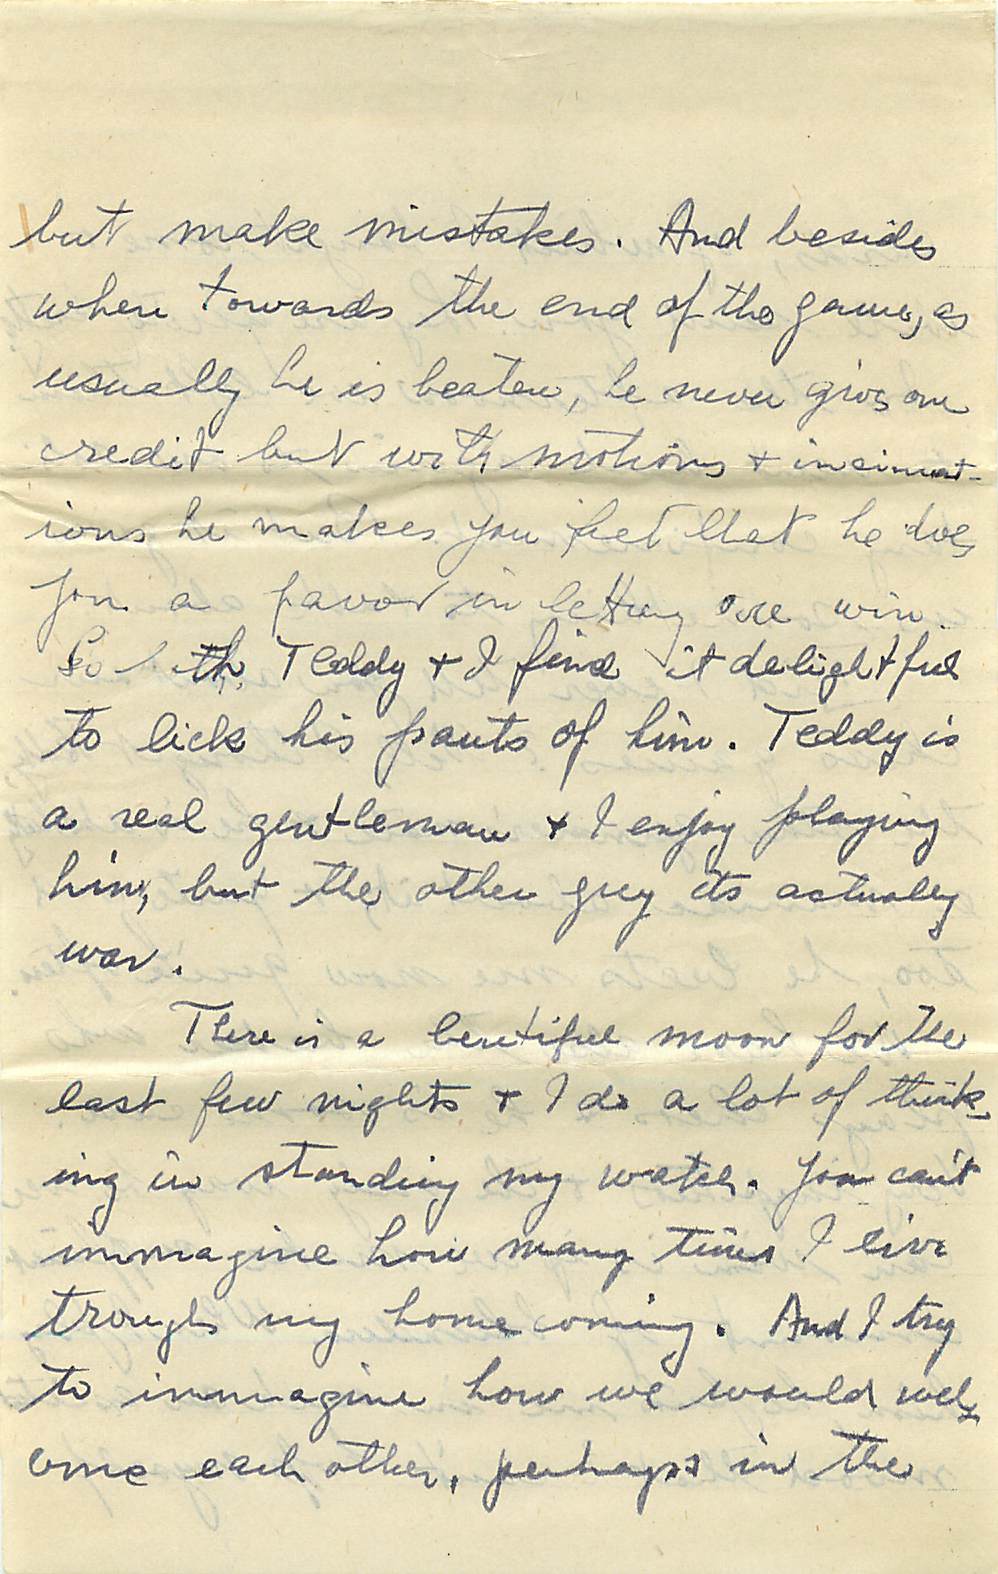 but make mistakes. And besides
when towards the end of the game, as
usually he is beaten, he never gives one
credit but with motions + insinuat-
ions he makes you feel that he does
you a favor in letting one win.
So Teddy + I find it delightful
to lick his pants of him. Teddy is
a real gentleman + I enjoy playing
him, but the other guy its actually
war.
There is a beutiful moon for the
last few nights + I do a lot of think-
ing in standing my watch. You can't
immagine how many times I live
trough my home coming. And I try
to immagine how we would wel-
come each other, perhaps in the